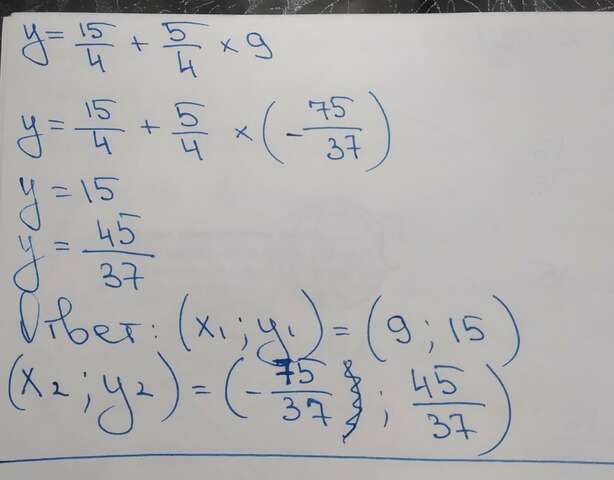 y = 15/4 + 5/4 × 9
y = 15/4 + 5/4 × (-75/37)
y = 15
y = 45/37
Ответ: (x₁ ; y₁) = (9 ; 15)
(x₂ ; y₂) = (-75/37 ; 45/37)